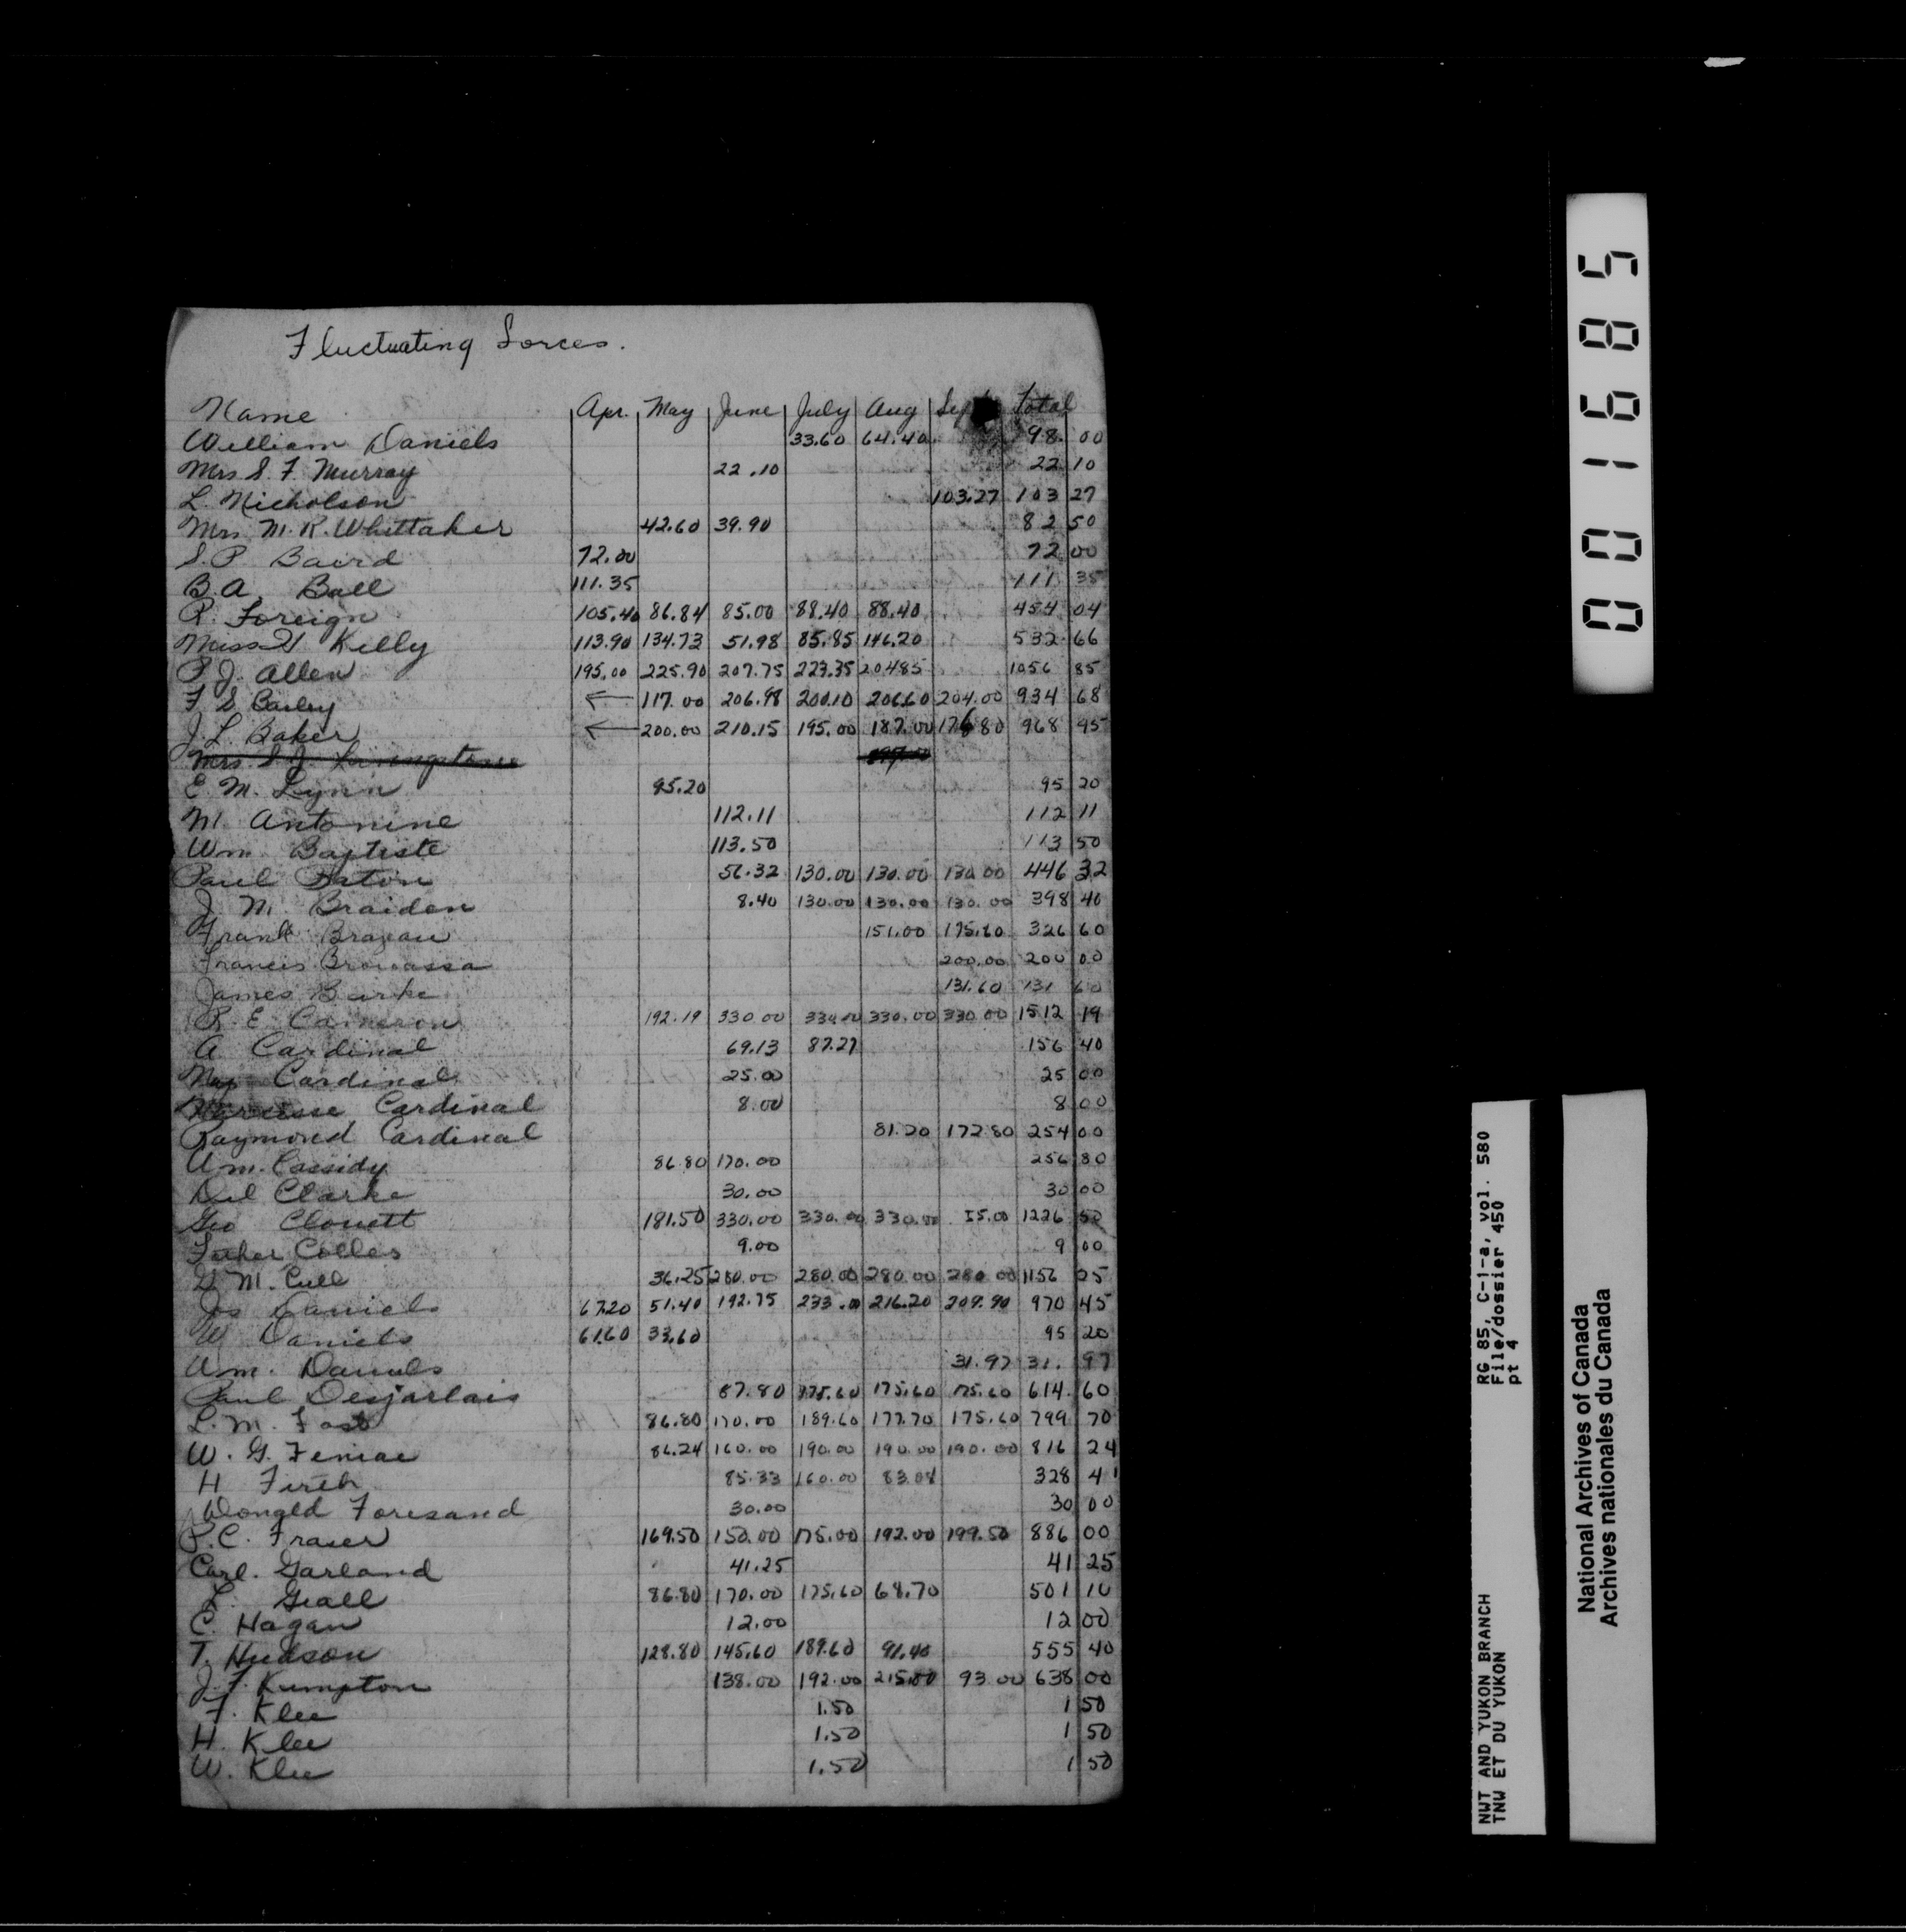 Fluctuating Forces.
Name Apr. May June July Aug Sept Total
William Daniels 33.60 64.40 98. 00
Mrs S. F. Murray 22.10 22 10
L. Nicholson 103.27 103 27
Mrs. M. R. Whittaker 42.60 39.90 82 50
S. P. Baird 72.00 72 00
B. A. Ball 111.35 111 35
P. Foreign 105.40 86.84 85.00 88.40 88.40 454 04
Miss H Kelly 113.90 134.73 51.98 85.85 146.20 532 66
P. J. Allen 195.00 225.90 207.75 223.35 204.85 1056 85
F S Bailey ← 117.00 206.98 200.10 206.60 204.00 934 68
J. L Baker ← 200.00 210.15 195.00 187.00 176.80 968 95
Mrs. S. J. Livingstone
E. M. Lynn 95.20 95 20
M. Antonine 112.11 112 11
Wm. Baptiste 113.50 113 50
Paul Baton 56.32 130.00 130.00 130.00 446 32
J. M. Braiden 8.40 130.00 130.00 130.00 398 40
Frank Brazeau 151.00 175.60 326 60
Francis 200.00 200 00
James Burke 131.60 131 60
R. E. Cameron 192.19 330.00 330.00 330.00 330.00 1512 19
A Cardinal 69.13 87.27 156 40
Nap Cardinal 25.00 25 00
Narcisse Cardinal 8.00 8 00
Raymond Cardinal 81.20 172.80 254 00
Wm. Cassidy 86.80 170.00 256 80
Del Clarke 30.00 30 00
Geo Clouett 181.50 330.00 330.00 330.00 55.00 1226 50
Father Colles 9.00 9 00
G. M. Cull 36.25 280.00 280.00 280.00 280.00 1156 25
Jos Daniels 67.20 51.40 192.75 233.00 216.20 209.90 970 45
W Daniels 61.60 33.60 95 20
Wm. Daniels 31.97 31. 97
Paul Desjarlais 87.80 175.60 175.60 175.60 614. 60
L. M. Fast 86.80 170.00 189.60 177.70 175.60 799 70
W. G. Feniac 86.24 160.00 190.00 190.00 190.00 816 24
H Firth 85.33 160.00 83.08 328 41
Donald Foresand 30.00 30 00
P. C. Fraser 169.50 150.00 175.00 192.00 199.50 886 00
Carl. Garland 41.25 41 25
L. Geall 86.80 170.00 175.60 68.70 501 10
C. Hagan 12.00 12 00
T. Hudson 128.80 145.60 189.60 91.40 555 40
J. F. Kumpton 138.00 192.00 215.00 93.00 638 00
F. Klee 1.50 1 50
H. Klee 1.50 1 50
W. Klee 1.50 1 50
001685
RG 85, C-1-a, vol. 580
File/dossier 450
pt 4
NWT AND YUKON BRANCH
TNW ET DU YUKON
National Archives of Canada
Archives nationales du Canada